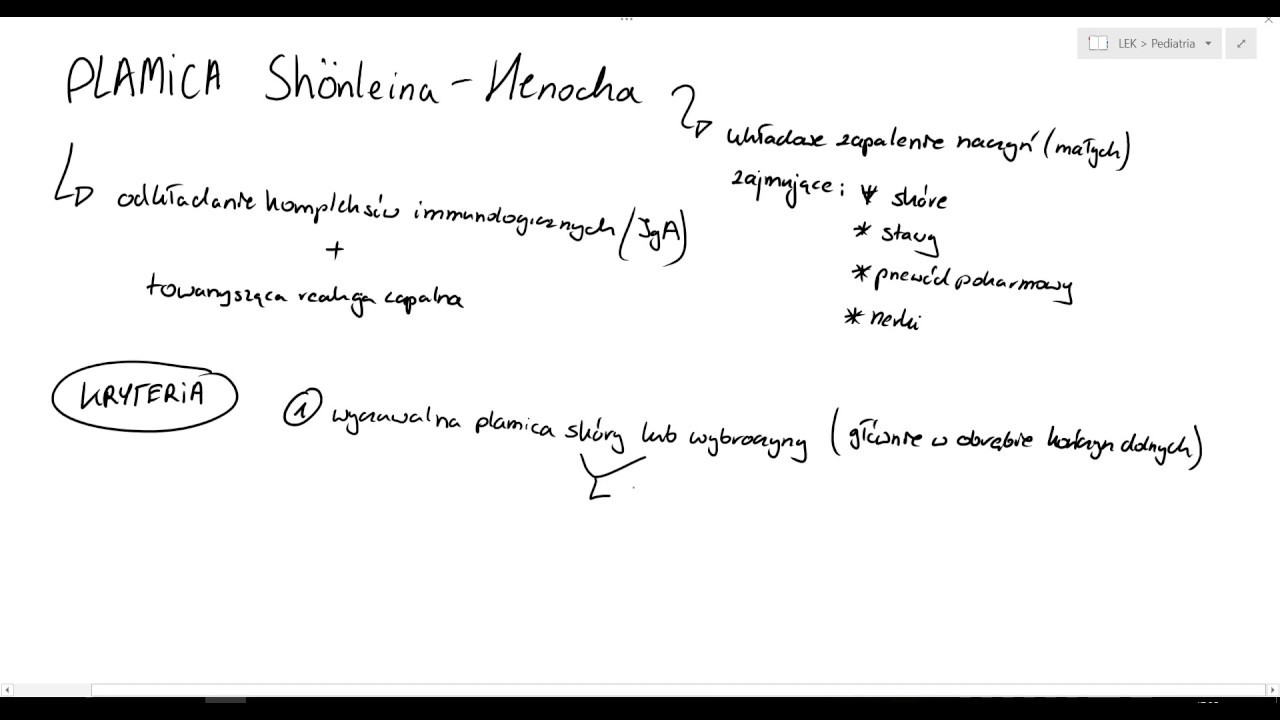 LEK > Pediatria
PLAMiCA Shönleina - Henocha
układowe zapalenie naczyń (małych)
zajmujące: * skóre
* stawy
* przewód pokarmowy
* nerki
odkładanie kompleksów immunologicznych (IgA)
+
towarzysząca reakcja zapalna
KRYTERiA
① wyczuwalna plamica skóry lub wybroczyny (głównie w obrębie kończyn dolnych)